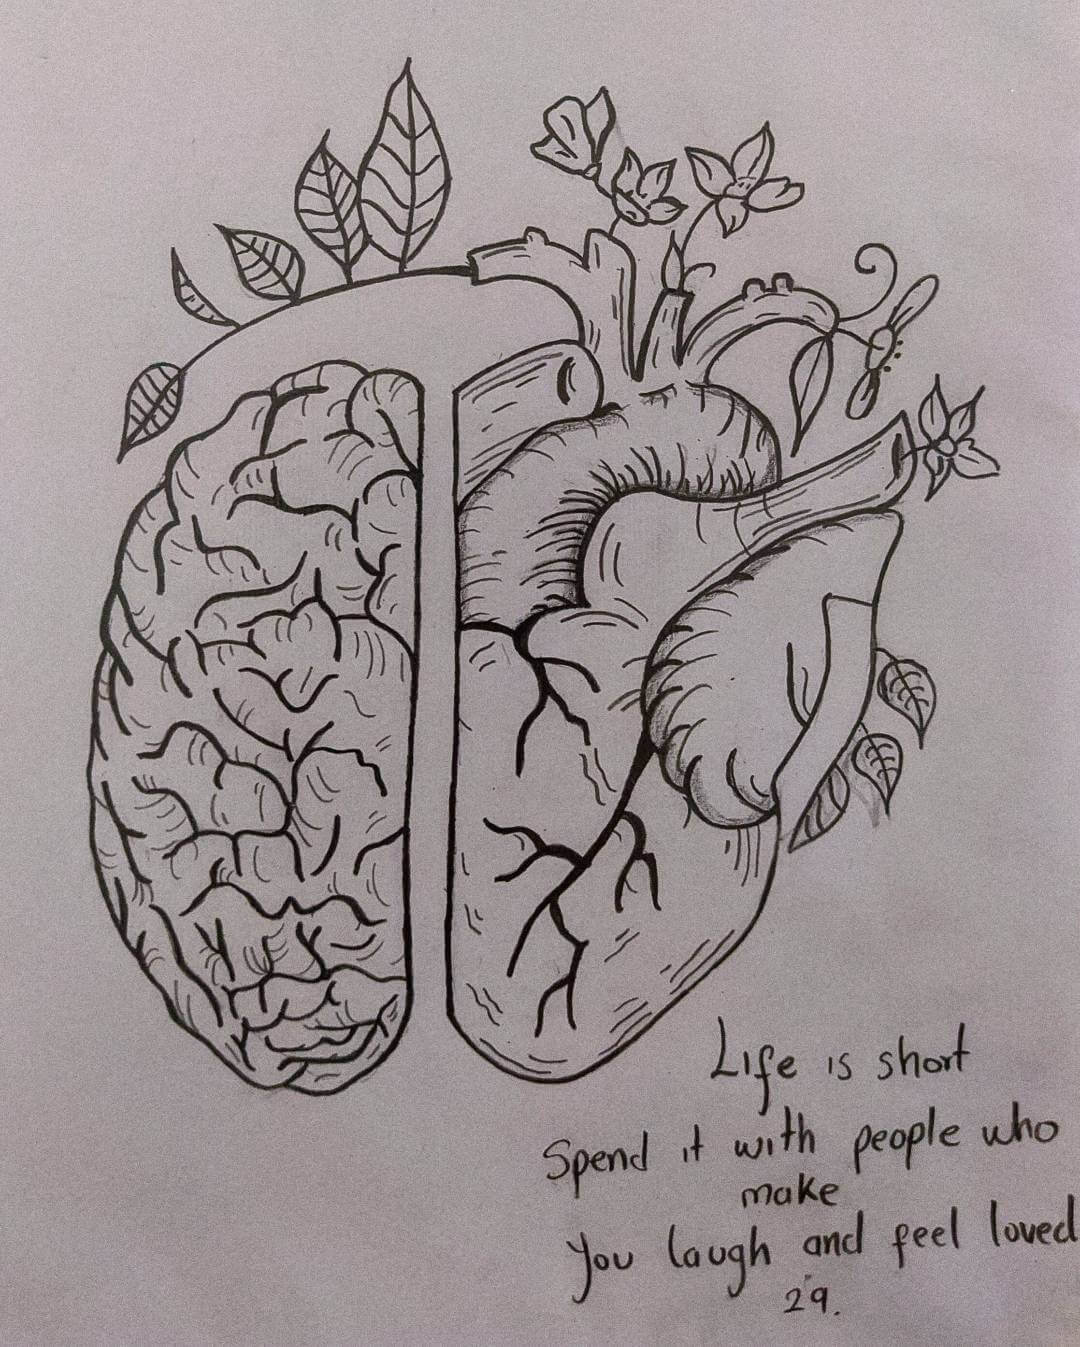 Life is short
Spend it with people who
make
you laugh and feel loved
29.